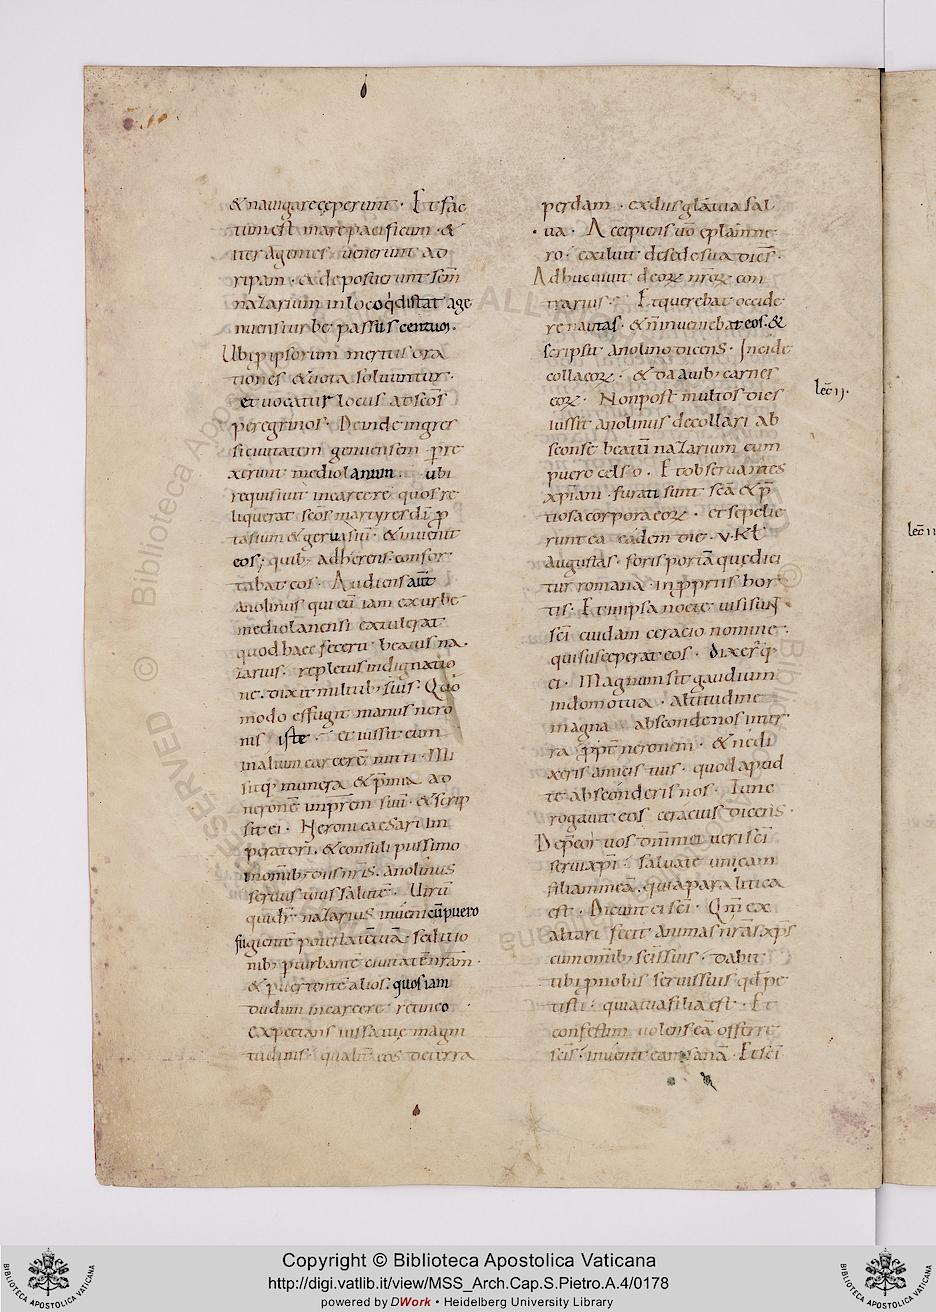 & nauigare ceperunt · Et fac
tum est mare pacificum · &
iter agentes uenerunt ad
ripam · & deposuerunt scm̄
nazarium in loco q̇ distat age
nuensi urbe passus centuꝫ.
Ubi ipsorum meritis ora
tiones & uota soluuntur ·
et uocatur locus ad scōs
peregrinos · Deinde ingres
si ciuitatem genuensem · ꝑre
xerunt mediolanum · ubi
requisiuit incarcere quos re
liquerat scōs martyres dī ꝓ
tasium & geruasiū · & inuenit
eos; quib; adherens confor
tabat eos · Audiens aūt
anolinus qui eū iam exurbe
mediolanensi expulerat
quod haec fecerit beatus na
zarius · repletus indignatio
ne · dixit militib; suis · Quo
modo effugit manus nero
nis iste · et iussit eum
in alium carcerē mitti · Mi
sitq; munera & p̄mia ad
neronē imp̄rem suū · & scrip
sit ei · Neroni caesari im
peratori · & consuli piissimo
inomīb; dīs nr̄is · anolinus
seruus tuus salutē · Uirū
quidā · nazarius inueni cū puero
fugientē potestatē tuā · seditio
nib; ꝑturbantē ciuitatē nr̄am ·
& ꝑuertentē alios · quos iam
dudum incarcere retineo ·
expectans iussa tuę magni
tudinis · qualit̄ eos deterra
perdam · & adiūs gl̄a tua sal
ua · Accipiens uō eplam ne
ro · exiliuit desede sua dicēs ·
Adhuc uiuit deoꝝ nr̄oꝝ con
trarius · Et querebat occide
re nautas · & n̄ inueniebat eos · &
scripsit anolino dicens · Incide
colla eoꝝ · & da auib; carnes
eoꝝ · Non post multos dies
iussit anolinus decollari ab
sconse beatū nazarium cum
puero celso · Et obseruantes
xp̄iani · furati sunt scā & p̄
tiosa corpora eoꝝ · et sepelie
runt ea eadem die · v · Kł
augustas · foris portā quę dici
tur romana · in ꝓprris hor
tis · Et in ipsa nocte uisi sunt
scī cuidam ceracio nomine ·
qui susceperat eos · dixerq̄
ei · Magnum sit gaudium
in domo tua · altitudine
magna absconde nos intus
ra ꝓpt̄ neronem · & ne di
xeris amicis tuis · quod apud
te absconderis nos · Tunc
rogauit eos ceracius dicens ·
Dep̄cor uos dn̄i mei ueri scī
serui xp̄i · saluate unicam
filiam meā · quia paralitica
est · Dicunt ei scī · Qm̄ ex
altari fecit animas nr̄as xp̄s
cum omīb; scīs suis · dabit
tibi ꝓ nobis seruis suis qd̄ pe
tisti · quia tua filia est · Et
confestim uolens eā offerre
scīs · inuenit eam sanā · Et scī
lec̄ ij.
Copyright © Biblioteca Apostolica Vaticana
http://digi.vatlib.it/view/MSS_Arch.Cap.S.Pietro.A.4/0178
powered by DWork • Heidelberg University Library